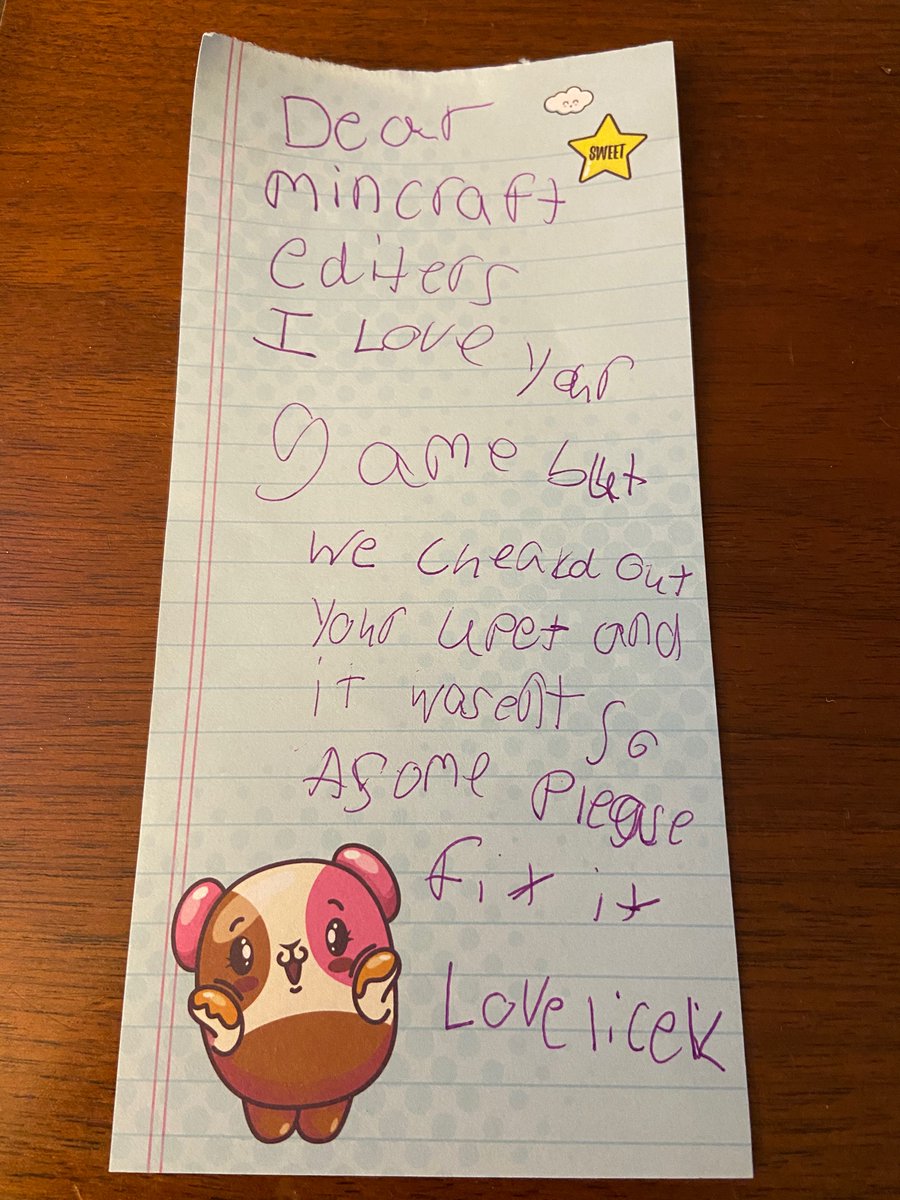 Dear
SWEET
mincraft
editers
I Love your
game but
we cheakd out
your upet and
it wasent so
Asome Please
Fix it
Love licek